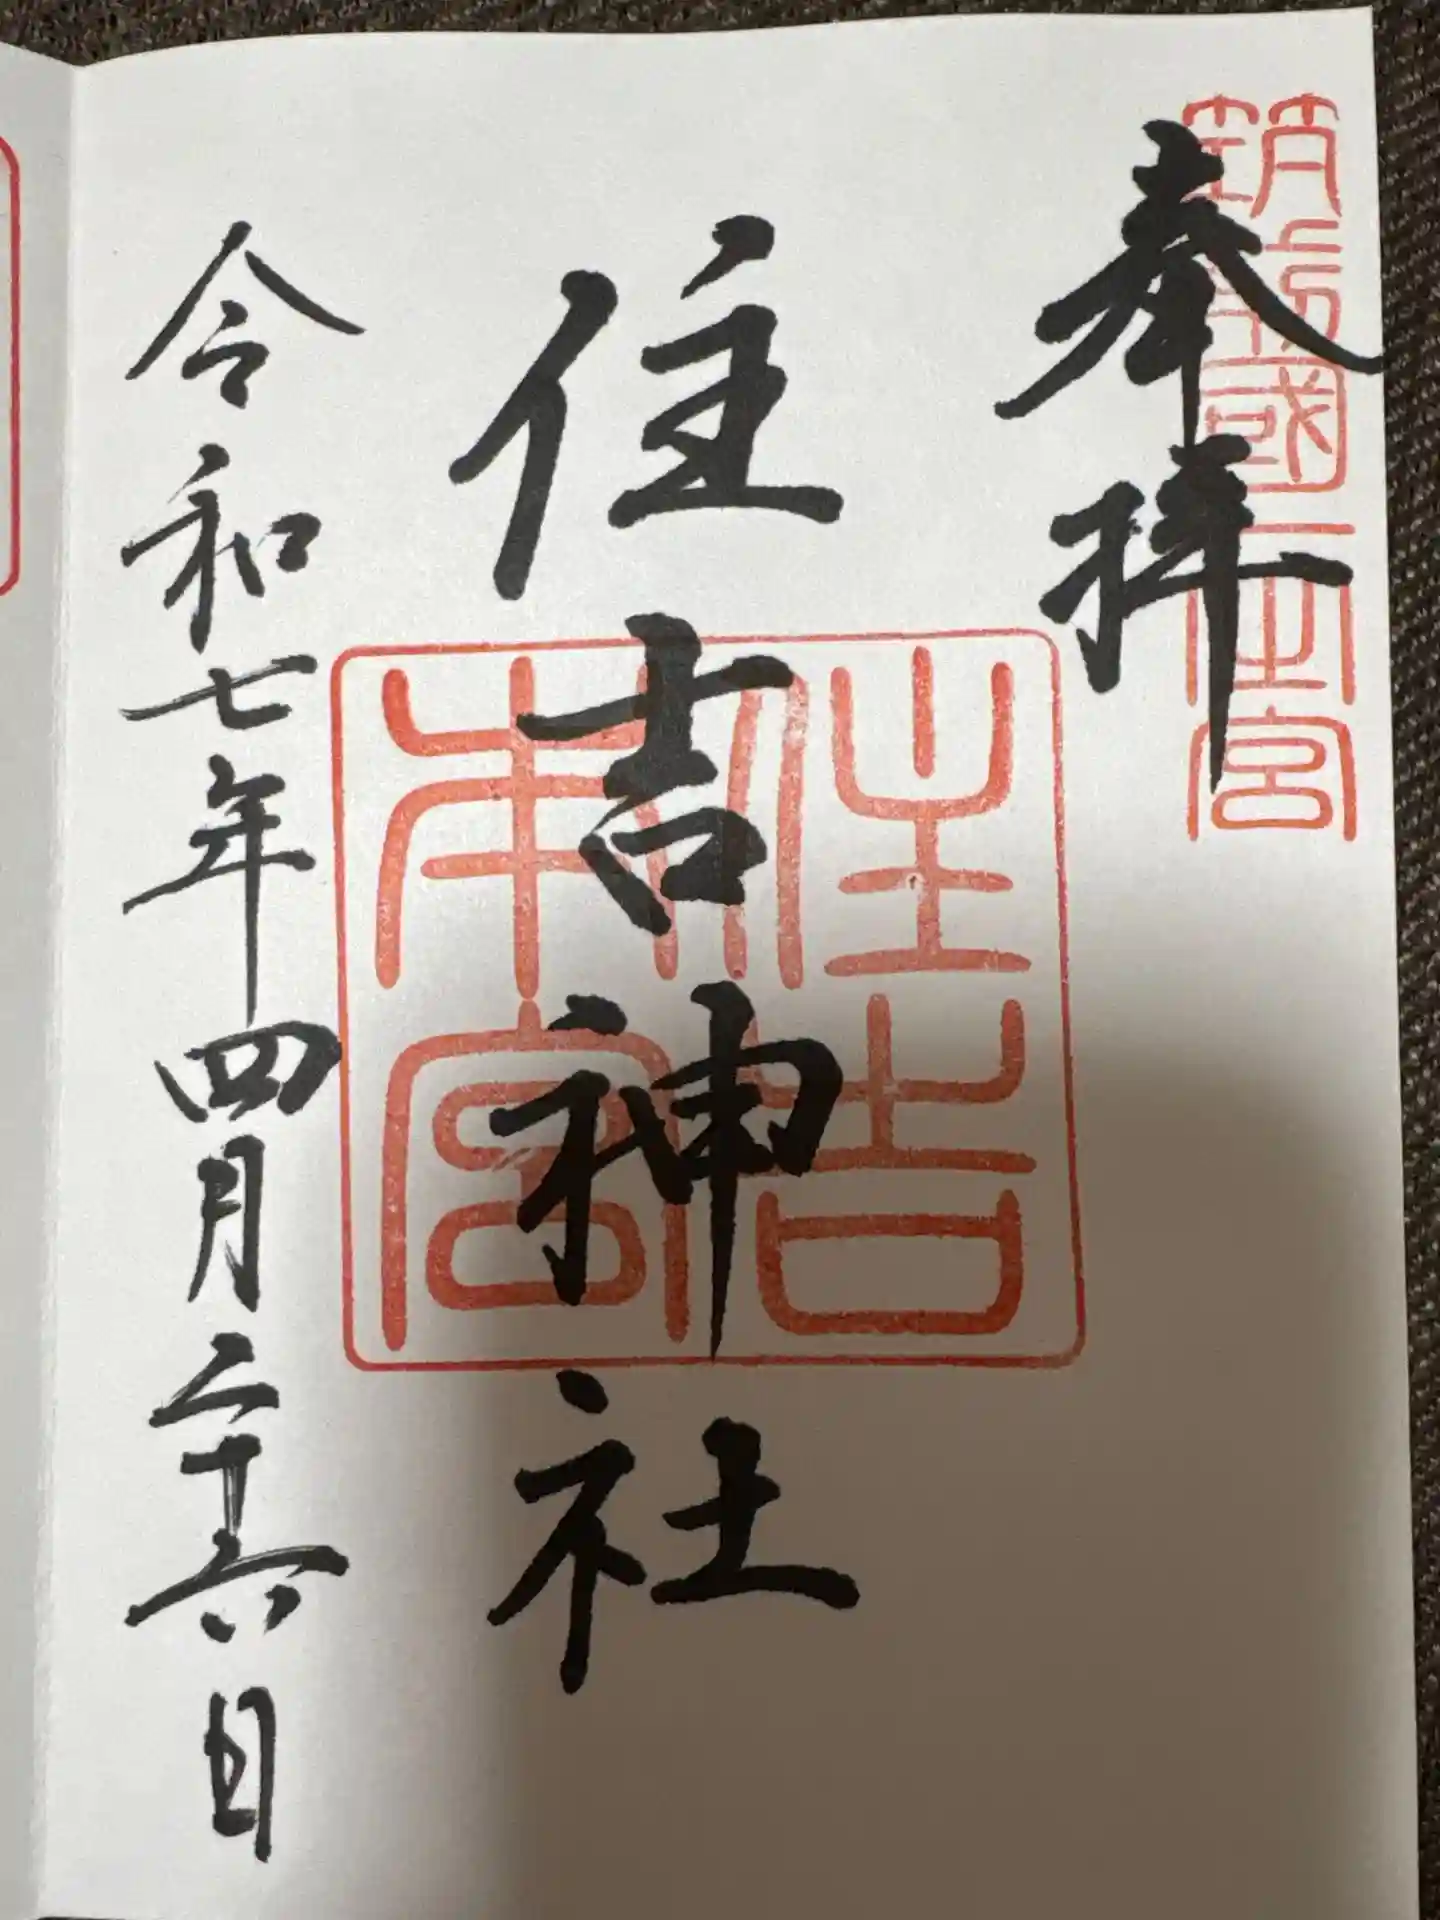 筑前國一之宮
奉拝
住吉神社
住吉
本宮
令和七年四月二十六日